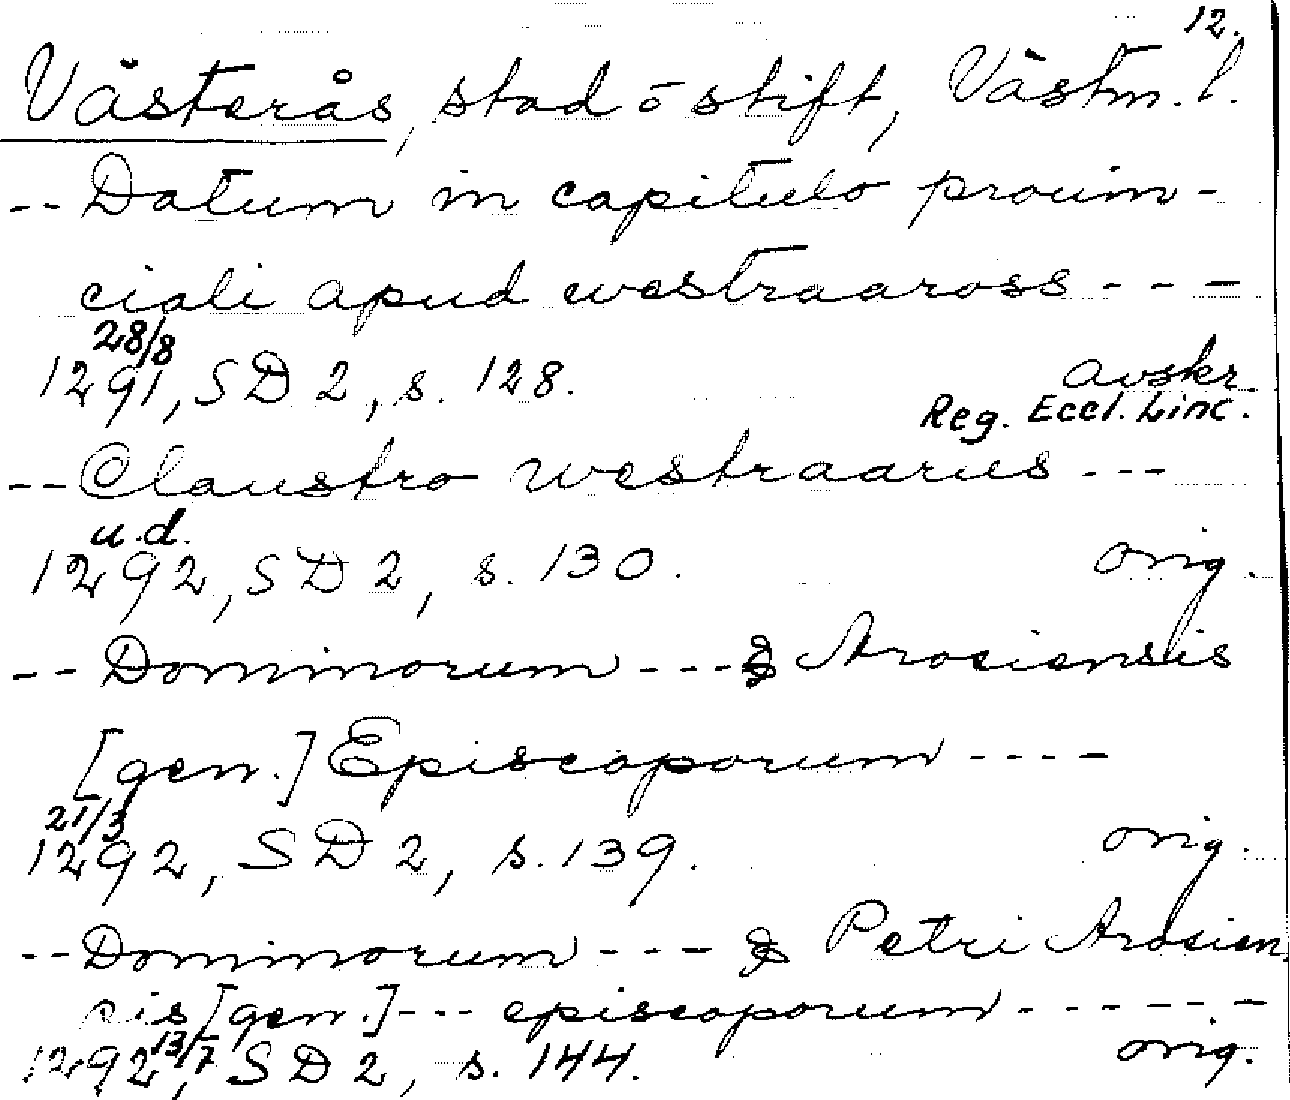 12.
Västerås, stad o stift, Västm. l.
-- Datum in capitulo prouin-
ciali apud westraaross ---
28/8
1291, SD 2, s. 128. avskr
Reg. Eccl. Linc.
-- Claustro westraarus ---
u.d.
1292, SD 2, s. 130. orig.
-- Dominorum --- & Arosiensis
[gen.] Episcoporum ----
21/3
1292, SD 2, s. 139. orig.
-- Dominorum --- & Petri Arosien
sis [gen.] --- episcoporum ------
13/7
1292, SD 2, s. 144. orig.